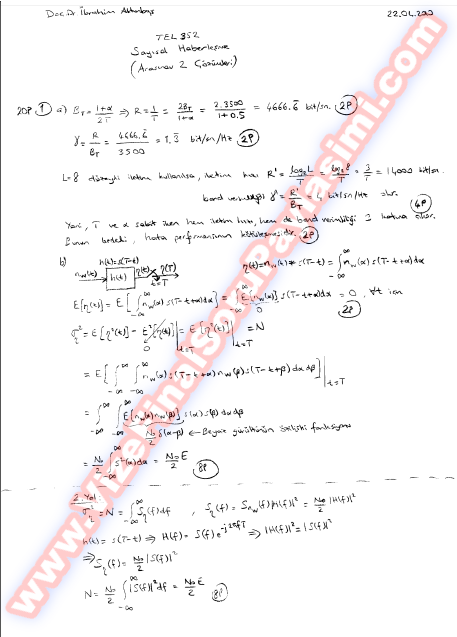 Doç.Dr İbrahim Altunbaş 22.04.200
TEL 352
Sayısal Haberleşme
(Arasınav 2 Çözümleri)
20P 1) a) B_T = (1+α)/2T ⇒ R = 1/T = 2B_T/(1+α) = 2.3500/(1+0.5) = 4666.6̄ bit/sn. (2P)
γ = R/B_T = 4666.6̄/3500 = 1.3̄ bit/sn/Hz (2P)
L=8 düzeyli iletim kullanılırsa, iletim hızı R' = log₂L/T = log₂8/T = 3/T = 14000 bit/sn.
band verimliliği γ' = R'/B_T = 4 bit/sn/Hz olur. (4P)
Yani, T ve α sabit iken hem iletim hızı, hem de band verimliliği 3 katına çıkar.
Bunun bedeli, hata performansının kötüleşmesidir. (2P)
b) h(t)=s(T-t)
n_w(t) h(t) η(t) η(T) t=T
η(t)=n_w(t)*s(T-t) = ∫_{-∞}^{∞} n_w(α) s(T-t+α)dα
E[η(t)] = E[∫_{-∞}^{∞} n_w(α) s(T-t+α)dα] = ∫_{-∞}^{∞} E[n_w(α)] s(T-t+α)dα = 0, ∀t için
0 (2P)
σ_η² = E[η²(t)] - E²[η(t)] |_{t=T} = E[η²(t)] |_{t=T} = N
0
= E[∫_{-∞}^{∞} ∫_{-∞}^{∞} n_w(α) s(T-t+α) n_w(β) s(T-t+β) dα dβ] |_{t=T}
= ∫_{-∞}^{∞} ∫_{-∞}^{∞} E[n_w(α) n_w(β)] s(α) s(β) dα dβ
N₀/2 δ(α-β) ← Beyaz gürültünün özilişki fonksiyonu
= N₀/2 ∫_{-∞}^{∞} s²(α)dα = N₀/2 E (8P)
2. Yol:
σ_η² = N = ∫_{-∞}^{∞} S_η(f)df , S_η(f) = S_{n_w}(f)|H(f)|² = N₀/2 |H(f)|²
h(t) = s(T-t) ⇒ H(f) = S(f) e^{-j2πfT} ⇒ |H(f)|² = |S(f)|²
⇒ S_η(f) = N₀/2 |S(f)|²
N = N₀/2 ∫_{-∞}^{∞} |S(f)|² df = N₀E/2 (8P)
www.VizeFinalSoruPaylasimi.com